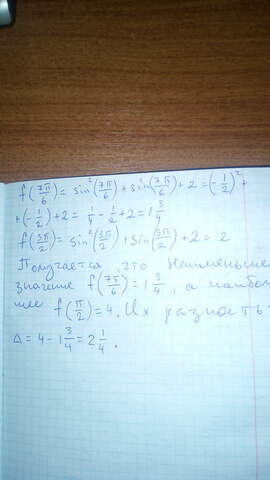 f(7π/6) = sin²(7π/6) + sin(7π/6) + 2 = (-1/2)² +
+ (-1/2) + 2 = 1/4 - 1/2 + 2 = 1 3/4
f(3π/2) = sin²(3π/2) + sin(3π/2) + 2 = 2
Получается, что наименьшее
значение f(7π/6) = 1 3/4, а наибол
шее f(π/2) = 4. Их разность
Δ = 4 - 1 3/4 = 2 1/4.